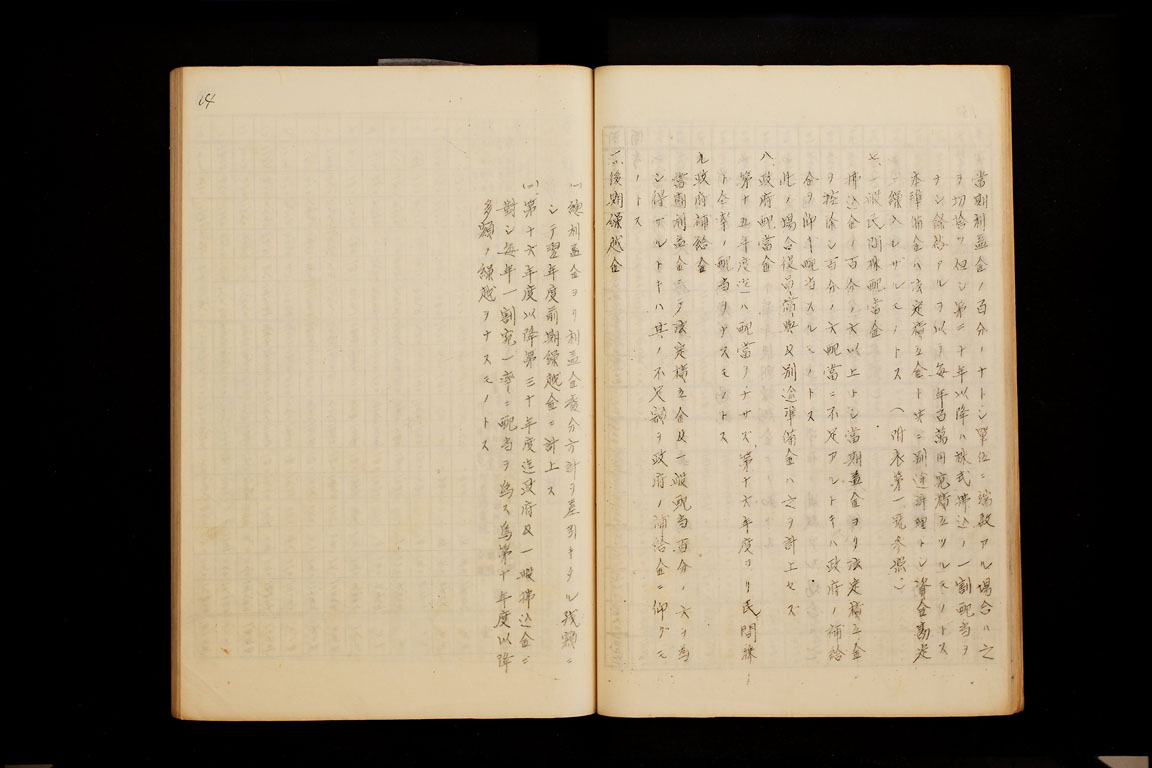 當期利益金ノ百分ノ十トシ單位ニ端数アル場合ハ之
ヲ切捨ツ但シ第二十年以降ハ株式拂込ノ一割配当ヲ
ナシ餘裕アルヲ以テ毎年百萬円宛積立ツルモノトス
本準備金ハ法定積立金ト共ニ別途計理トシ資金勘定
ニ繰入レザルモノトス(附表第一號参照)
七、一般民間株配當金
拂込金ノ百分ノ六以上トシ當期益金ヨリ法定積立金
ヲ控除シ百分ノ六配當ニ不足アルトキハ政府ノ補給
金ヲ仰ギ配当スルモノトス
此ノ場合役員賞與及別途準備金ハ之ヲ計上セズ
八、政府配當金
第十五年度迄ハ配當ヲナサズ、第十六年度ヨリ民間株
ト仝率ノ配当ヲナスモノトス
九、政府補給金
當期利益金ニテ法定積立金及一般配当百分ノ六ヲ為
シ得ザルトキハ其ノ不足額ヲ政府ノ補給金ニ仰グモ
ノトス
一〇、後期繰越金
(一)總利益金ヨリ利益金處分方計ヲ差引キタル残額ニ
シテ翌年度前期繰越金ニ計上ス
(二)第十六年度以降第三十年度迄政府及一般拂込金ニ
對シ毎年一割宛一率ニ配当ヲ為ス為第十年度以降
多額ノ繰越ヲナスモノトス
64